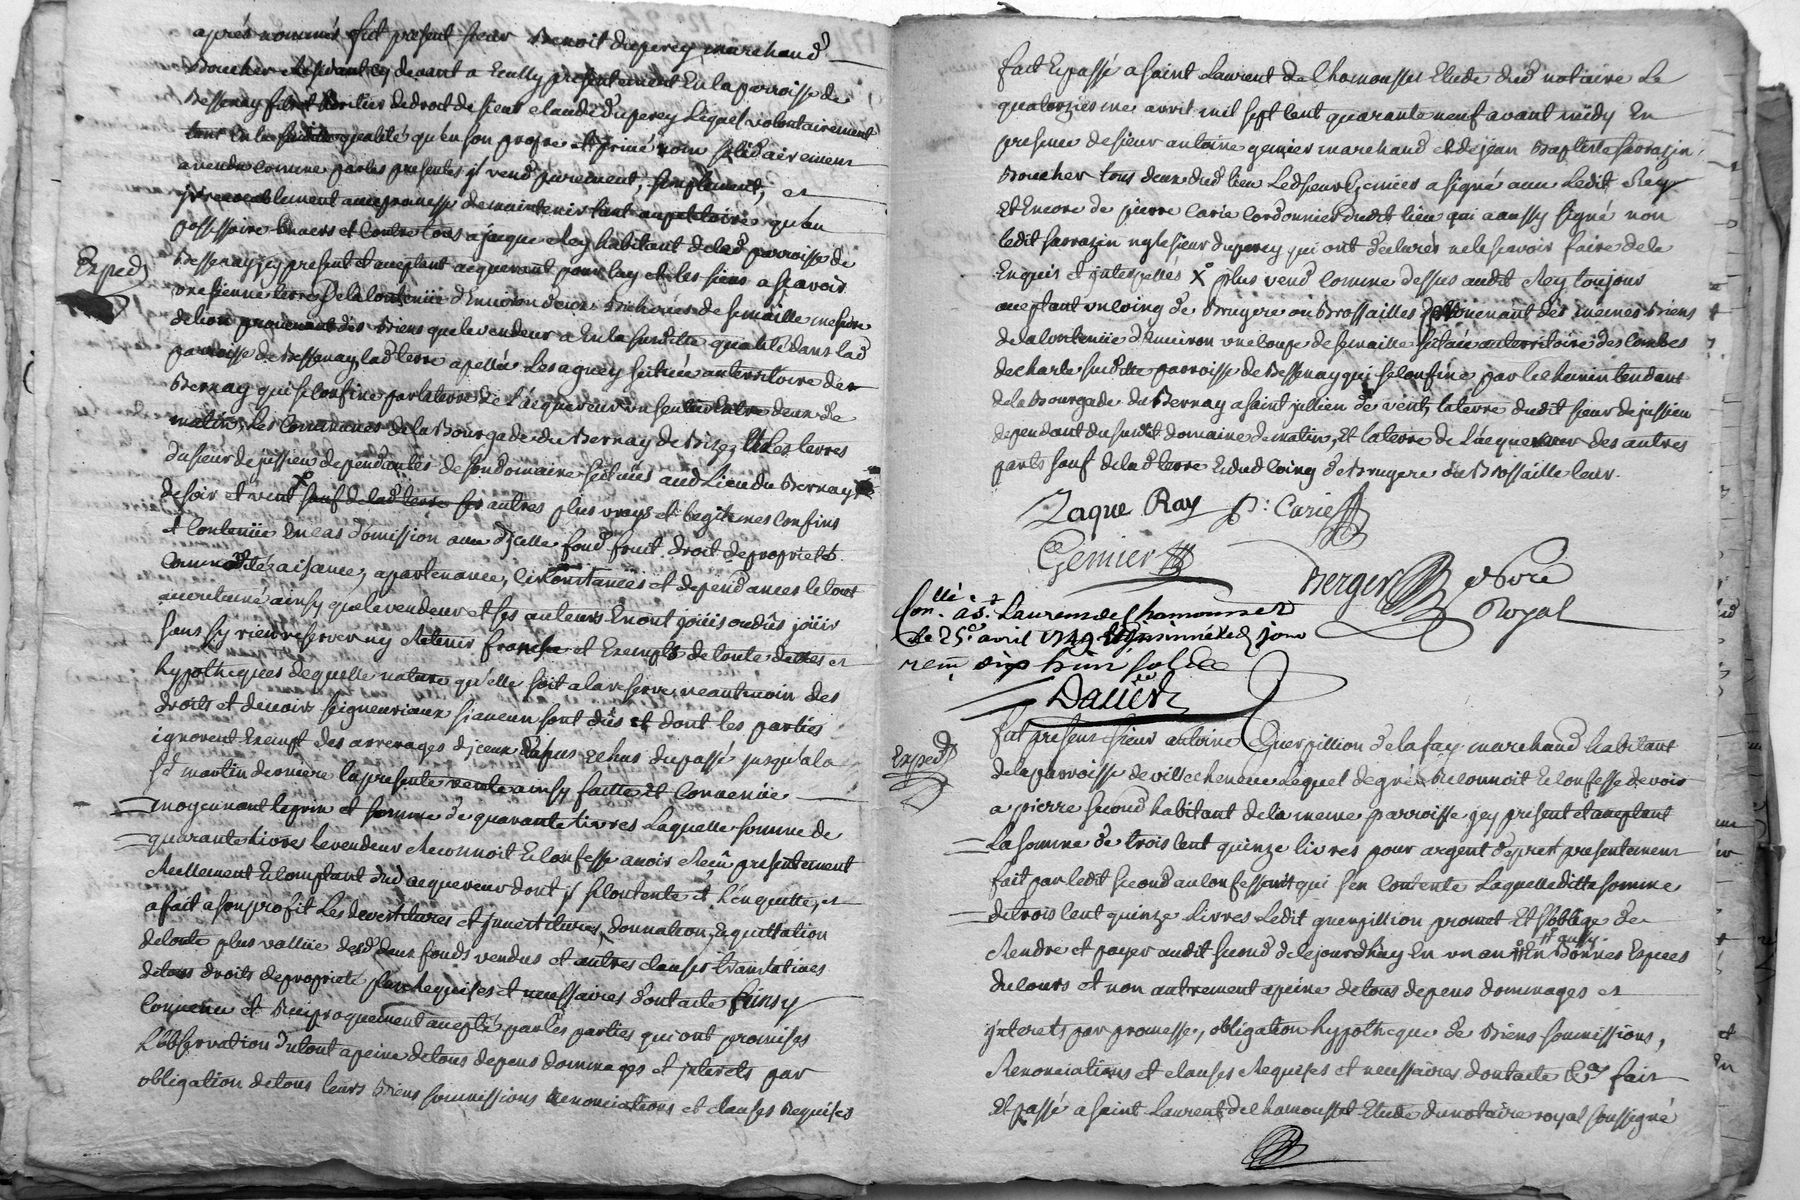 après nommés fut présent sieur Benoit duperey marchand
Boucher Residant cy devant a Ecully presentement En la parroisse de
Bessenay fils et heritier de droit de sieur claude duperey Lequel volontairement
tant En la susditte qualité qu'en son propre et privé nom solidairement
a vendu comme par les presentes il vend purement, simplement, et
irrevocablement avec promesse de maintenir tant au petitoire qu'au
possessoire Envers et Contre tous a jaque Rey habitant de lad parroisse de
Bessenay icy present et acceptant acquereur pour luy et les siens a scavoir
Exped
une sienne terre De la Contenüe d'Environ deux Bicherées de semaille mesure
de lion provenant des Biens que le vendeur a En la susditte qualité dans lad
parroisse de Bessenay, lad terre apellée Les agneys scituée au territoire de
Bernay qui se Confine par la terre de l'acquereur un sentier Entre deux de
matin, Les Communes de la Bourgade du Bernay de Bize, Et Les terres
du sieur de jussieu dependantes de son domaine scituées aud Lieu du Bernay
de soir et vent x sauf de lad terre ses autres plus vrays et legitimes confins
et Contenüe En cas d'omission avec d'jcelle fond, fruit, droit de proprieté
Commodité, aisance, apartenance, circonstances et dependances le tout
accoutumé ainsy que le vendeur et ses auteurs En ont joüis ou dûs joüir
sans sy rien reserver ny Retenir franche et Exempte de toute dettes et
hypotheques de quelle nature qu'elle soit a la reserve neantmoin des
droits et devoirs seigneuriaux si aucun sont dûs et dont les parties
ignorent Exempt des arrerages d'jceux depuis Echus du passé jusqu'a la
St martin derniere la presente vente ainsy faitte et Convenüe
moyennant le prix et somme de quarante livres Laquelle somme de
quarante livres le vendeur Reconnoit Et Confesse avoir Receu presentement
Reellement Et Comptant dud acquereur dont il se Contente et L'en quitte, et
a fait a son profit Les devestitures et Jnvestitures, donnation, Et quittation
de toute plus vallüe desd deux fonds vendus et autres clauses translatives
de tous droits de proprieté Requises et necessaires d'ont acte Ainsy
Convenu et Reciproquement accepté par les parties qui ont promises
L'observation du tout a peine de tous depens dommages et jnterets par
obligation de tous leurs Biens soumissions Renonciations et clauses Requises
fait Et passé a saint Laurent de Chamousset Etude dud notaire Le
quatorzieme avril mil sept cent quarante neuf avant midy En
presence de sieur antoine genier marchand et de jean Baptiste sarrazin
Boucher tous deux dud lieu Led sieur Genier a signé avec Ledit Rey
Et Encore de pierre Carie Cordonnier dudit lieu qui a aussy signé non
ledit sarrazin ny le sieur duperey qui ont declarés ne le scavoir faire de ce
Enquis et jnterpellés x plus vend comme dessus audit Rey toujours
acceptant un Coing de Bruyere ou Brossailles provenant des memes Biens
de la Contenüe d'Environ une Coupe de semaille scitué au territoire des Combes
de charle susditte parroisse de Bessenay qui se Confine par le chemin tendant
de la Bourgade du Bernay a saint jullien de vent, la terre dudit sieur de jussieu
dependant du susdit domaine de matin, Et la terre de L'acquereur des autres
parts sauf de lad terre Et dud Coing de Bruyere ou Brossaille leur.
Jaque Ray P: Carie
Genier
Berger no.re
Royal
Con.llé a St. Laurent de Chamousset
Le 25e avril 1749
Daüier
Exped
fut present sieur antoine Guerpillion de la fay marchand habitant
de la parroisse de villechenene Lequel de gré Reconnoit Et Confesse devoir
a pierre second habitant de la meme parroisse jcy present et acceptant
La somme de trois cent quinze livres pour argent de prêt presentement
fait par ledit second au Confessant qui s'en Contente Laquelle ditte somme
de trois cent quinze Livres Ledit guerpillion promet Et s'oblige de
Rendre et payer audit second de ce jourd'huy En un an En Bonnes Especes
du Cours et non autrement a peine de tous depens dommages et
jnterets par promesse, obligation hypotheque de Biens soumissions,
Renonciations et clauses Requises et necessaires d'ont acte &a fait
Et passé a saint Laurent de Chamousset Etude du notaire royal soussigné